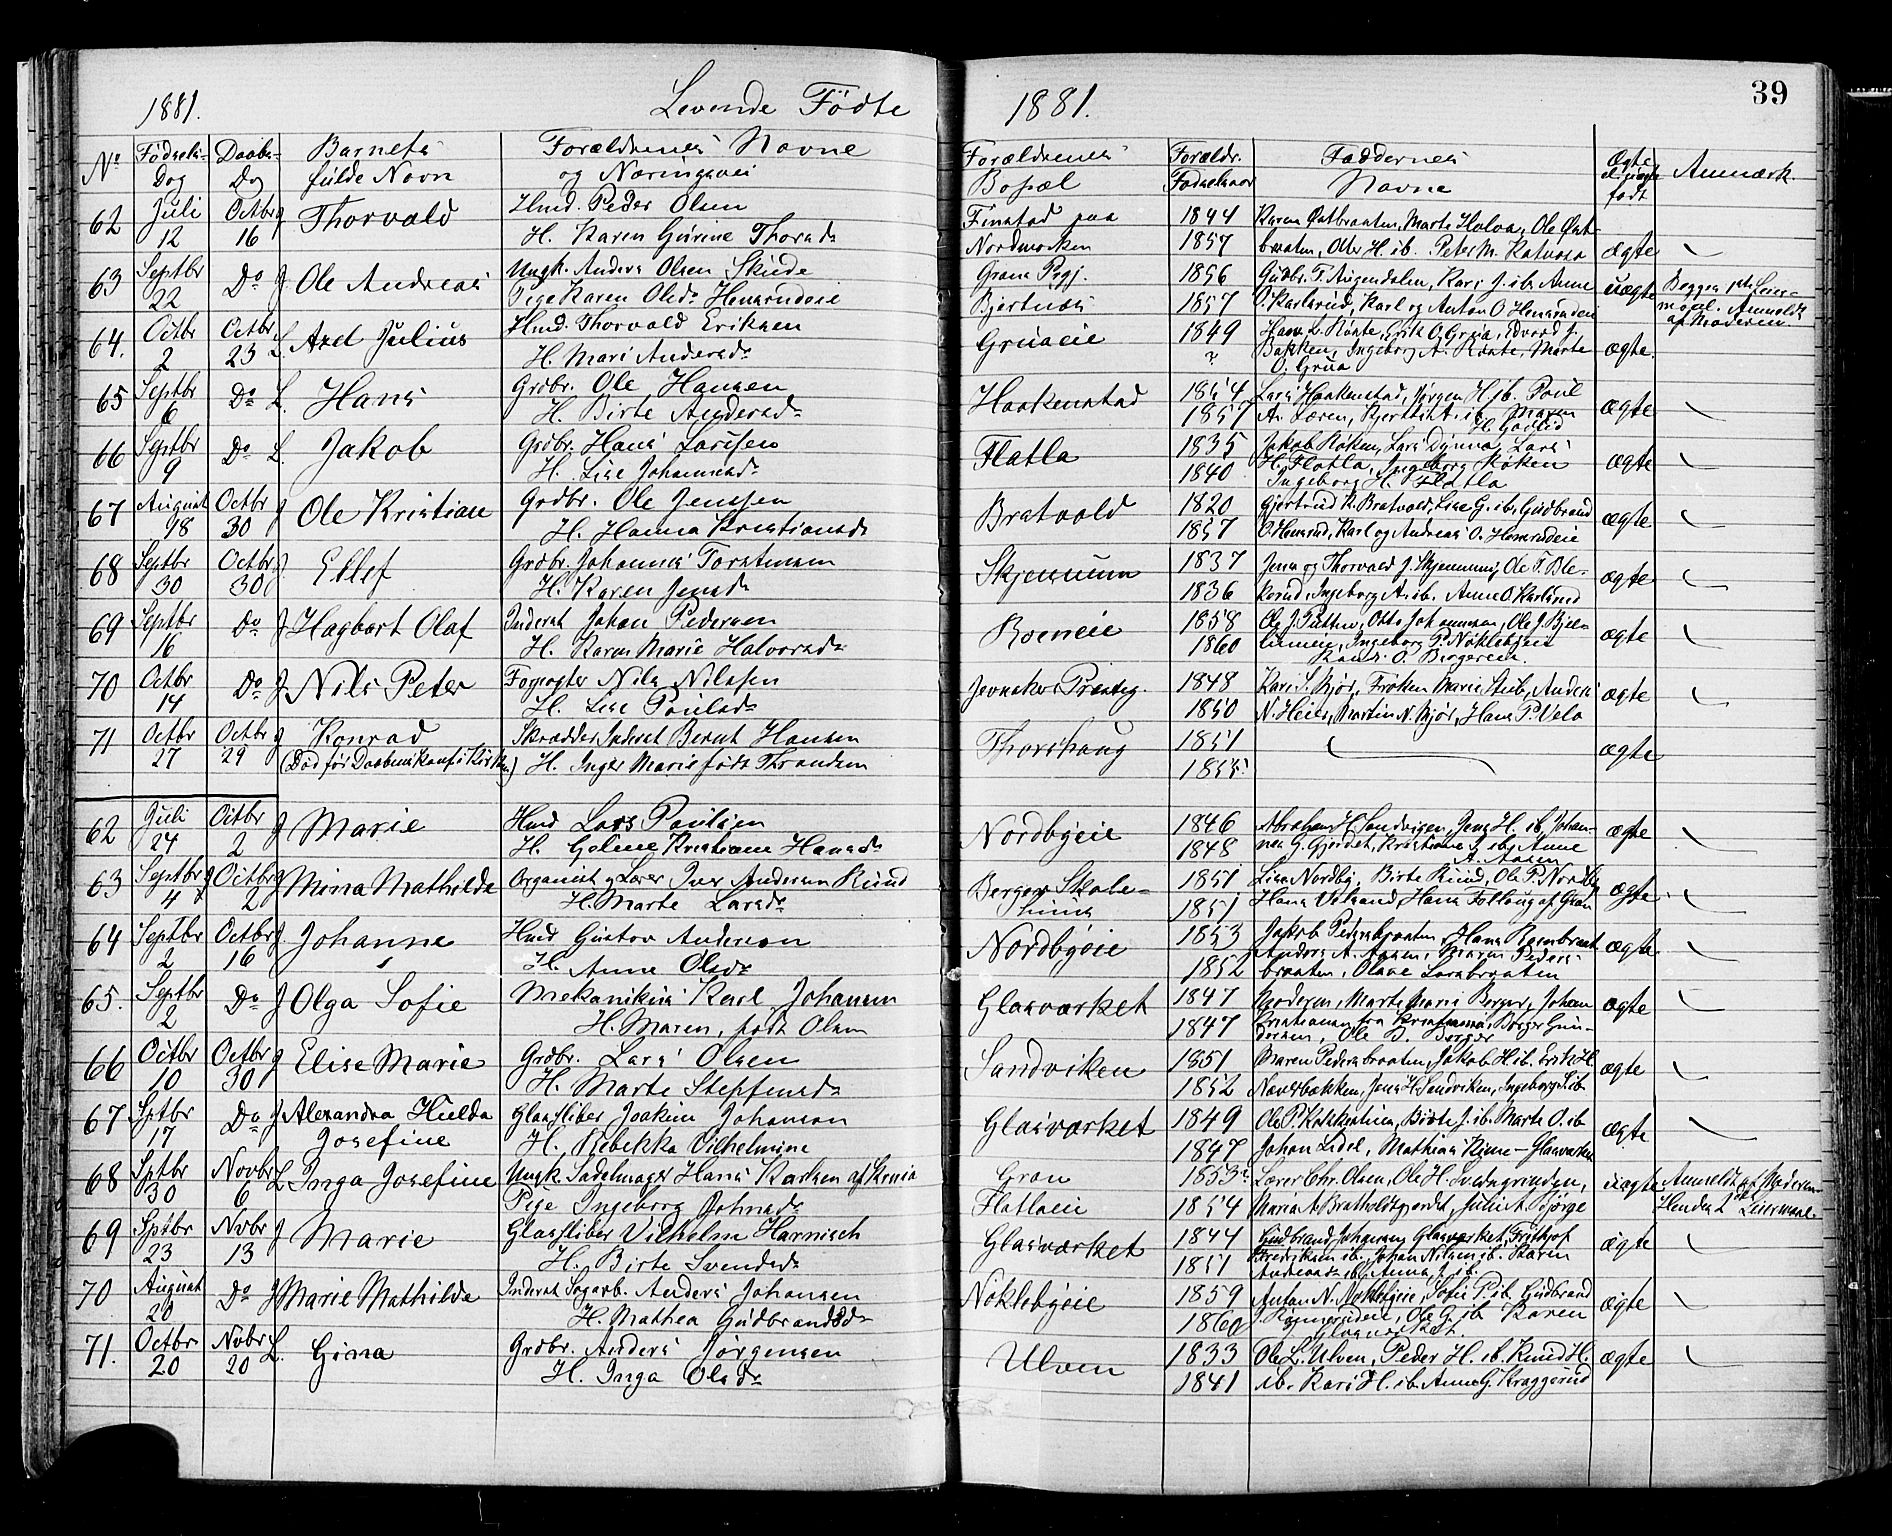 1881. Levende Fødte 1881. 39
No Fødsels- Daabs- Barnets Forældrenes Navne Forældrenes Forældr. Faddernes Ægte Anmærk.
Dag Dag fulde Navn og Næringsvei Bopæl Fødselsaar Navne født
62 Juli Octbr J Thorvald Husd. Peder Olsen Finstad paa 1844 Karen Østbraaten, Marte Halva, Ole Øst-
12 16 H. Karen Gurine Thorsd. Nordmarken 1857 braaten, Otter H. ib. Peter M. ægte
63 Septbr Do J Ole Andreas Ungk. Anders Olsen Skude Grans Prgj. 1856 Gudbr. T. Augendalen, Kari J. ib. Anne uægte Begges 1ste Leier-
22 Pige Karen Olsdr Hensrudeie Bjertnæs 1857 O. Karlsrud, Karl og Anton O. Hensrudeie maal. Anmeldt
64. Octbr Octbr L Axel Julius Husd. Thorvald Eriksen Gruaeie 1849 Hans L. Erik O. Grua, Edvard J. af Moderen
2 23 H. Mari Andersd. ? Bakken, Ingeborg A. Marte ægte.
O. Grua
65 Septbr Do L. Hans Grdbr. Ole Hansen Haakenstad 1854 Lars Haakenstad, Jørgen H. ib. Poul
6 H. Birte Andersd. 1857 An. Læren, Kjersti A. ib. Maren ægte
H. Gaslid
66 Septbr Do L. Jakob Grdbr. Hans Larssen Flatla 1835 Jakob Røken, Lars Dynna, Lars
9 H. Lise Johannesd. 1840 H. Flatla, Ingeborg Røken ægte
Ingeborg H. Flatla
67 August Octbr J Ole Kristian Grdbr. Ole Jenssen Bratvold 1820 Gjertrud K. Bratvold, Lise G. ib. Gudbrand
18 30 H. Hanna Kristiansd. 1857 O. Hensrud, Karl og Andreas O. Hensrudeie ægte
68 Septbr Octbr J. Ellef Grdbr. Johannes Torstensen Skjennum 1837 Jens og Thorvald J. Skjennum, Ole T. Ble-
30 30 H. Karen Jensd. 1836 kerud, Ingeborg A. ib. Anne O. Karlsrud ægte
69 Septbr Do J Hagbart Olaf Inderst Johan Pedersen Roeneie 1858 Ole J. Otto Johannesen, Ole J. Bjel-
16 H. Karen Marie Halvorsd. 1860 Ingeborg P. Nøklebyeie ægte
O. Bergereie.
70 Octbr Do J Nils Peter Forpagter Nils Nilssen Jevnaker Præsteg. 1848 Kari S. Bjør, Frøken Marie Steib, Anders
14 H. Lise Poulsd. 1850 N. Heier, Martin N. Bjør, Hans P. Velo ægte
71 Octbr Octbr J Konrad Skrædder Inderst Bernt Hansen Thorshaug 1851
27 29 (Død før Daabens i Kirken) H. Inger Marie født Throndsen 1855 ægte
62 Juli Octbr J Marie Husd Lars Paulsen Nordbyeie 1846 Abrahem H. Sandvigen, Jens H. ib. Johan-
24 2 H. Goline Kristiane Hansd. 1848 nes G. Gjerdet, Kristiane J. ib. Anne ægte
A. Aasen
63 Septbr J Octbr Mina Mathilde Organist og Lærer Iver Andersen Ruud Berger Skole- 1851 Lise Nordby, Birte Ruud, Ole P. Nordby
4 2 H. Marte Larsdr 1851 Hans Velsand, Hans Follaug af Gran ægte
64 Septbr Octbr J. Johanne Husd Gustav Andersen Nordbyeie 1853 Jakob Pedersbraaten, Hans
2 16 H. Anne Olsdr 1852 Anders A. Aasen, Maren Peders- ægte
braaten, Olave Larsbraaten
65. Septbr Do J Olga Sofie Mekanikus Karl Johansen Glasværket 1847 Moderen, Marte Marie Berger, Johan
2 H. Maren, født Olsen 1847 Kristiansen fra Kristiania, Berger Gun- ægte
dersen, Ole B. Berger
66 Octbr Octbr J Elise Marie Grdbr. Lars Olsen Sandviken 1851 Maren Pedersbraaten, Jakob H. ib. Erik H.
10 30 H. Marte Steffensd. 1852 Næverbakken, Jens H. Sandviken, Ingeborg S. ib ægte
67 Sptbr Do J Alexandra Hulda Glassliber Joakim Johansen Glasværket 1849 Ole P. Birte J. ib. Marte O. ib
17 Josefine H. Rebekka Vilhelmine 1847 Johan Lidel, Mathias Glasværket ægte
68 Sptbr Novbr L Inga Josefine Ungk. Sadelmager Hans Karlsen af Gran 1853 Lærer Chr. Olsen, Ole H. Svensgrindjen, uægte Anmeldt af Moderen
30 6 Pige Ingeborg Johnsd. Flatlaeie 1854 Maria A. Bratholdtgjerdet, Julie A. Bjørge Hendes 2det Leiermaal.
69 Sptbr Nvbr J Marie Glassliber Vilhelm Harnisch Glasværket 1844 Gudbrand Johansen Glasværket, Frithjof
23 13 H. Birte Svendsd. 1851 Fredriksen ib. Johan Nilsen ib. Karen ægte
Andersd. ib. Anna J. ib.
70 August Do J Marie Mathilde Inderst Sagarb. Anders Johansen Nøklebyeie 1859 Anton N. Nøklebyeie, Sofie P. ib. Gudbrand
20 H. Mathea Gudbrandsd. 1860 J. Ole G. ib Karen ægte
Glasværket.
71. Octbr Nvbr L. Gina Grdbr. Anders Jørgensen Ulven 1833 Ole L. Ulven, Peder H. ib. Knud H. ægte
20 20 H. Inga Olsdr 1841 ib. Kari H. ib. Anne G. Kraggerud